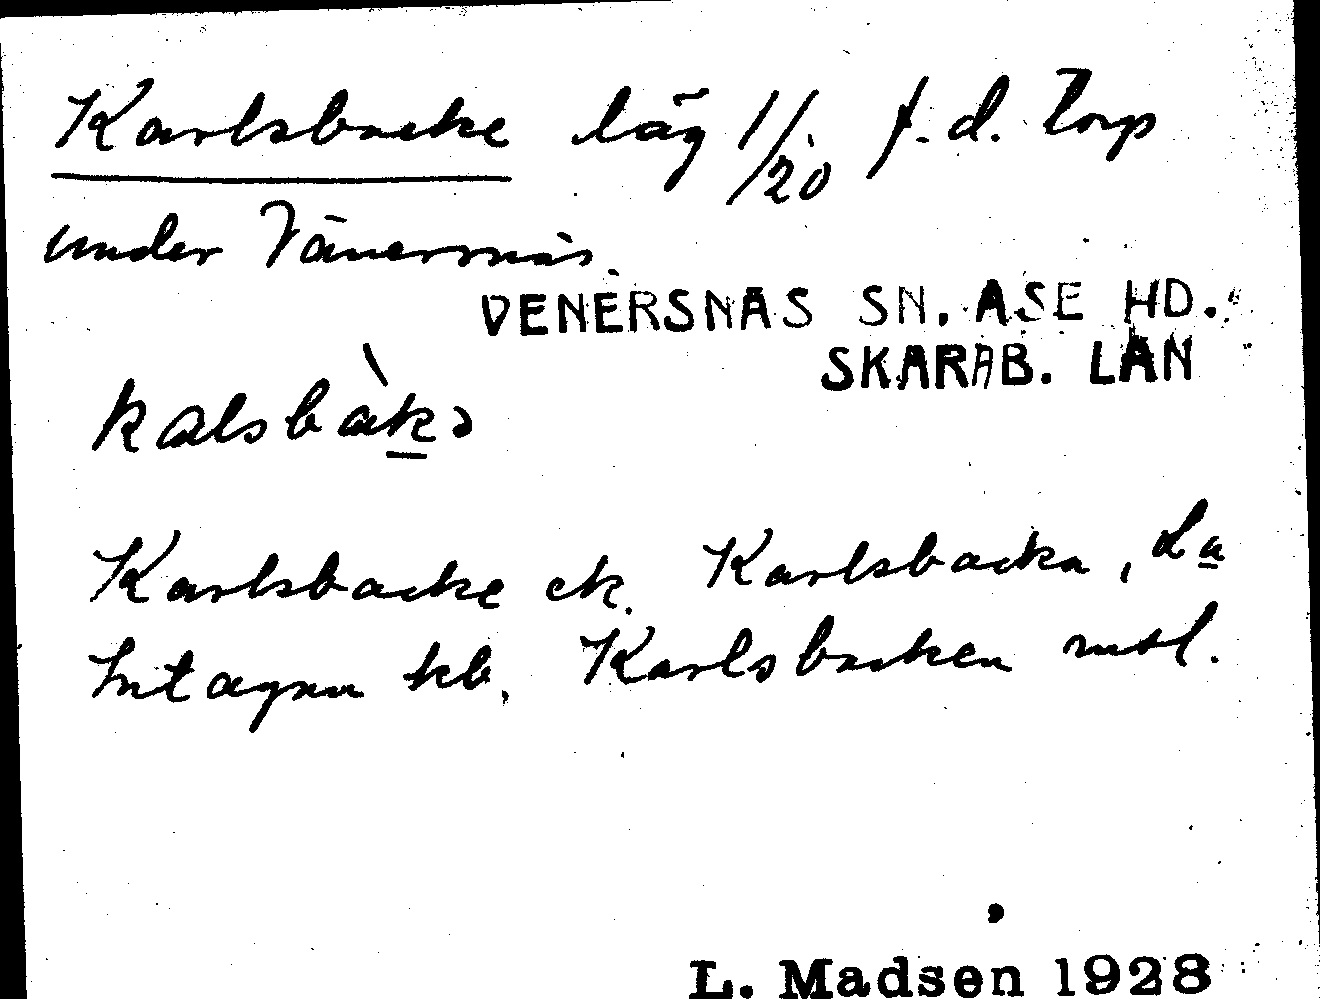 Karlsbacke läg 1/20 f.d. Torp
under Vänernäs.
VENERSNÄS SN. ÅSE HD.
SKARAB. LÄN
kalsbàkə
Karlsbacke ek. Karlsbacka, La
Intagan kb. Karlsbacken mtl.
L. Madsen 1928